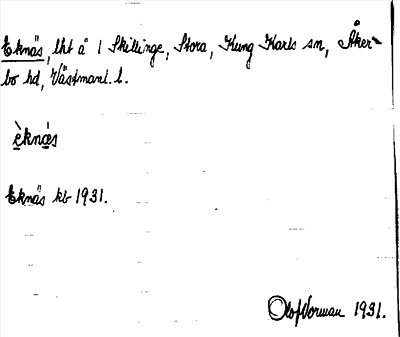 Eknäs, lht å 1 Skillinge, Stora, Kung Karls sn, Åker-
bo hd, Västmanl. l.
èknä̀s
Eknäs kb 1931.
Olof Norman 1931.